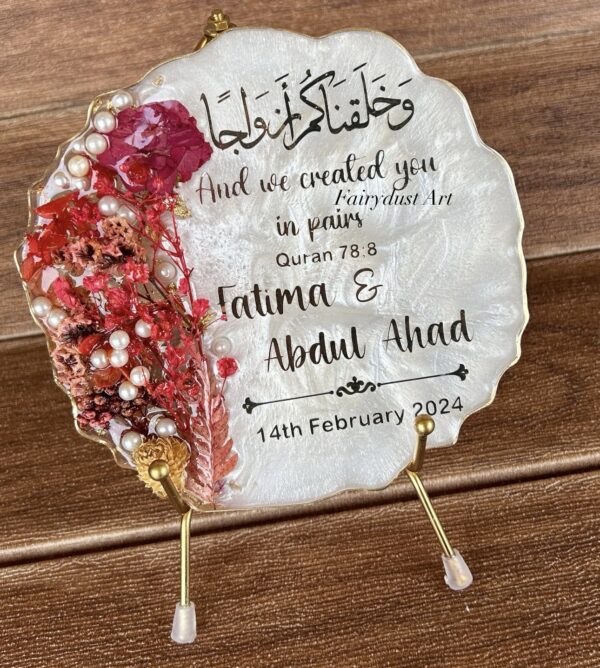 وَخَلَقْنَاكُمْ أَزْوَاجًا
And we created you
Fairydust Art
in pairs
Quran 78:8
Fatima &
Abdul Ahad
14th February 2024